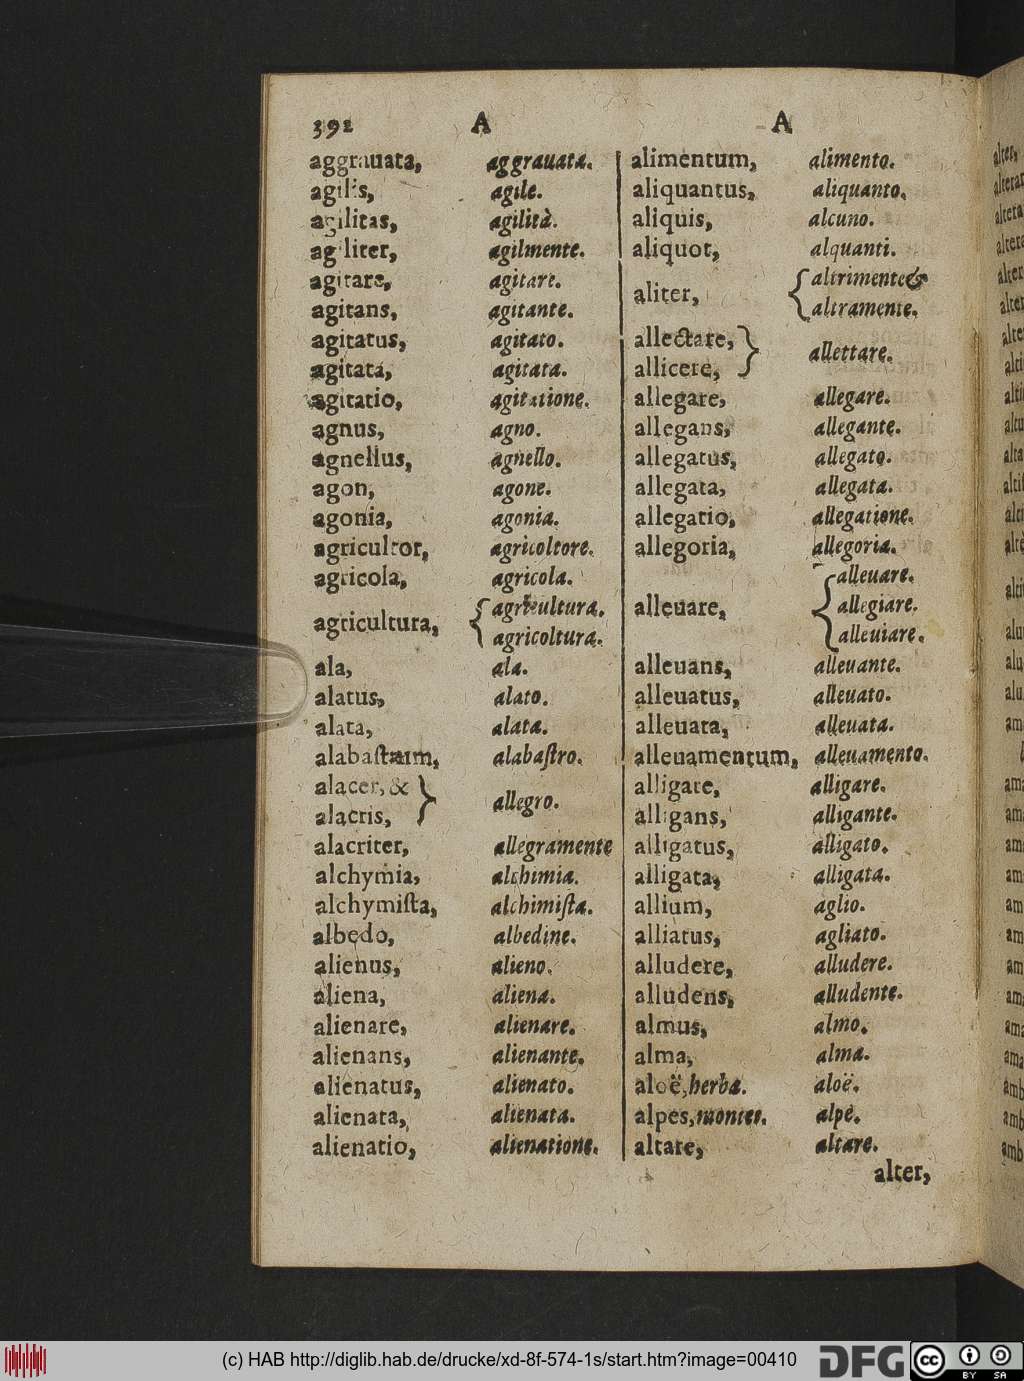 392 A A
aggrauata, aggrauata.
agilis, agile.
agilitas, agilità.
agiliter, agilmente.
agitare, agitare.
agitans, agitante.
agitatus, agitato.
agitata, agitata.
agitatio, agitatione.
agnus, agno.
agnellus, agnello.
agon, agone.
agonia, agonia.
agricultor, agricoltore.
agricola, agricola.
agricultura, { agricultura.
agricoltura.
ala, ala.
alatus, alato.
alata, alata.
alabaſtrum, alabaſtro.
alacer, &
alacris, } allegro.
alacriter, allegramente
alchymia, alchimia.
alchymiſta, alchimiſta.
albedo, albedine.
alienus, alieno.
aliena, aliena.
alienare, alienare.
alienans, alienante.
alienatus, alienato.
alienata, alienata.
alienatio, alienatione.
alimentum, alimento.
aliquantus, aliquanto.
aliquis, alcuno.
aliquot, alquanti.
aliter, { altrimente &
altramente.
allectare,
allicere, } allettare.
allegare, allegare.
allegans, allegante.
allegatus, allegato.
allegata, allegata.
allegatio, allegatione.
allegoria, allegoria.
alleuare, { alleuare.
allegiare.
alleuiare.
alleuans, alleuante.
alleuatus, alleuato.
alleuata, alleuata.
alleuamentum, alleuamento.
alligare, alligare.
alligans, alligante.
alligatus, alligato.
alligata, alligata.
allium, aglio.
alliatus, agliato.
alludere, alludere.
alludens, alludente.
almus, almo.
alma, alma.
aloë, herba. aloë.
alpes, montes. alpe.
altare, altare.
alter,
(c) HAB http://diglib.hab.de/drucke/xd-8f-574-1s/start.htm?image=00410
DFG
cc BY SA